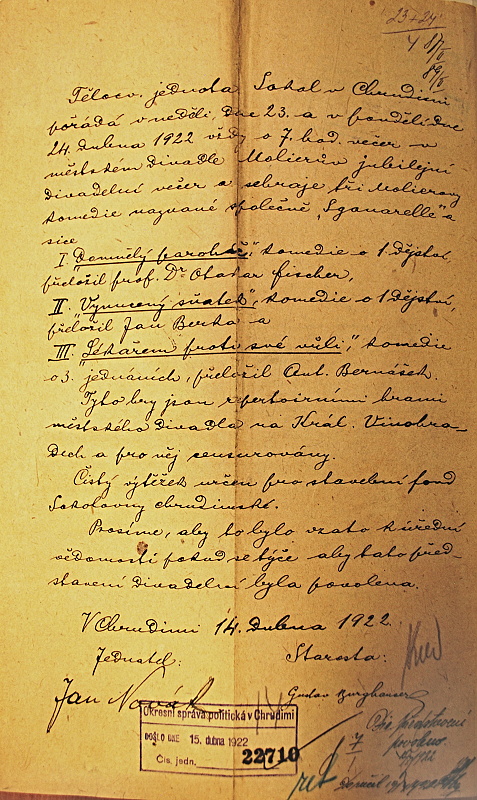 23+24/
Tělocv. jednota Sokol v Chrudimi
pořádá v neděli, dne 23. a v pondělí dne
24. dubna 1922 vždy o 7. hod. večer v
městském divadle Molierův jubilejní
divadelní večer a sehraje tři Molierovy
komedie nazvané společně „Sganarelle" a
sice
I. „Domnělý paroháč", komedie o 1 dějství,
přeložil prof. Dr. Otakar Fischer,
II. „Vynucený sňatek", komedie o 1 dějství,
přeložil Jan Berka a
III. „Lékařem proti své vůli", komedie
o 3. jednáních, přeložil Ant. Bernášek.
Tyto hry jsou repertoirními hrami
městského divadla na Král. Vinohra-
dech a pro něj censurovány.
Čistý výtěžek určen pro stavební fond
Sokolovny chrudimské.
Prosíme, aby to bylo vzato k úřední
vědomosti pokud se týče aby tato před-
stavení divadelní byla povolena.
V Chrudimi 14. dubna 1922.
Jednatel: Starosta:
Jan Novák Gustav Burghauser
Okresní správa politická v Chrudimi
DOŠLO DNE 15. dubna 1922
Čís. jedn. 22710